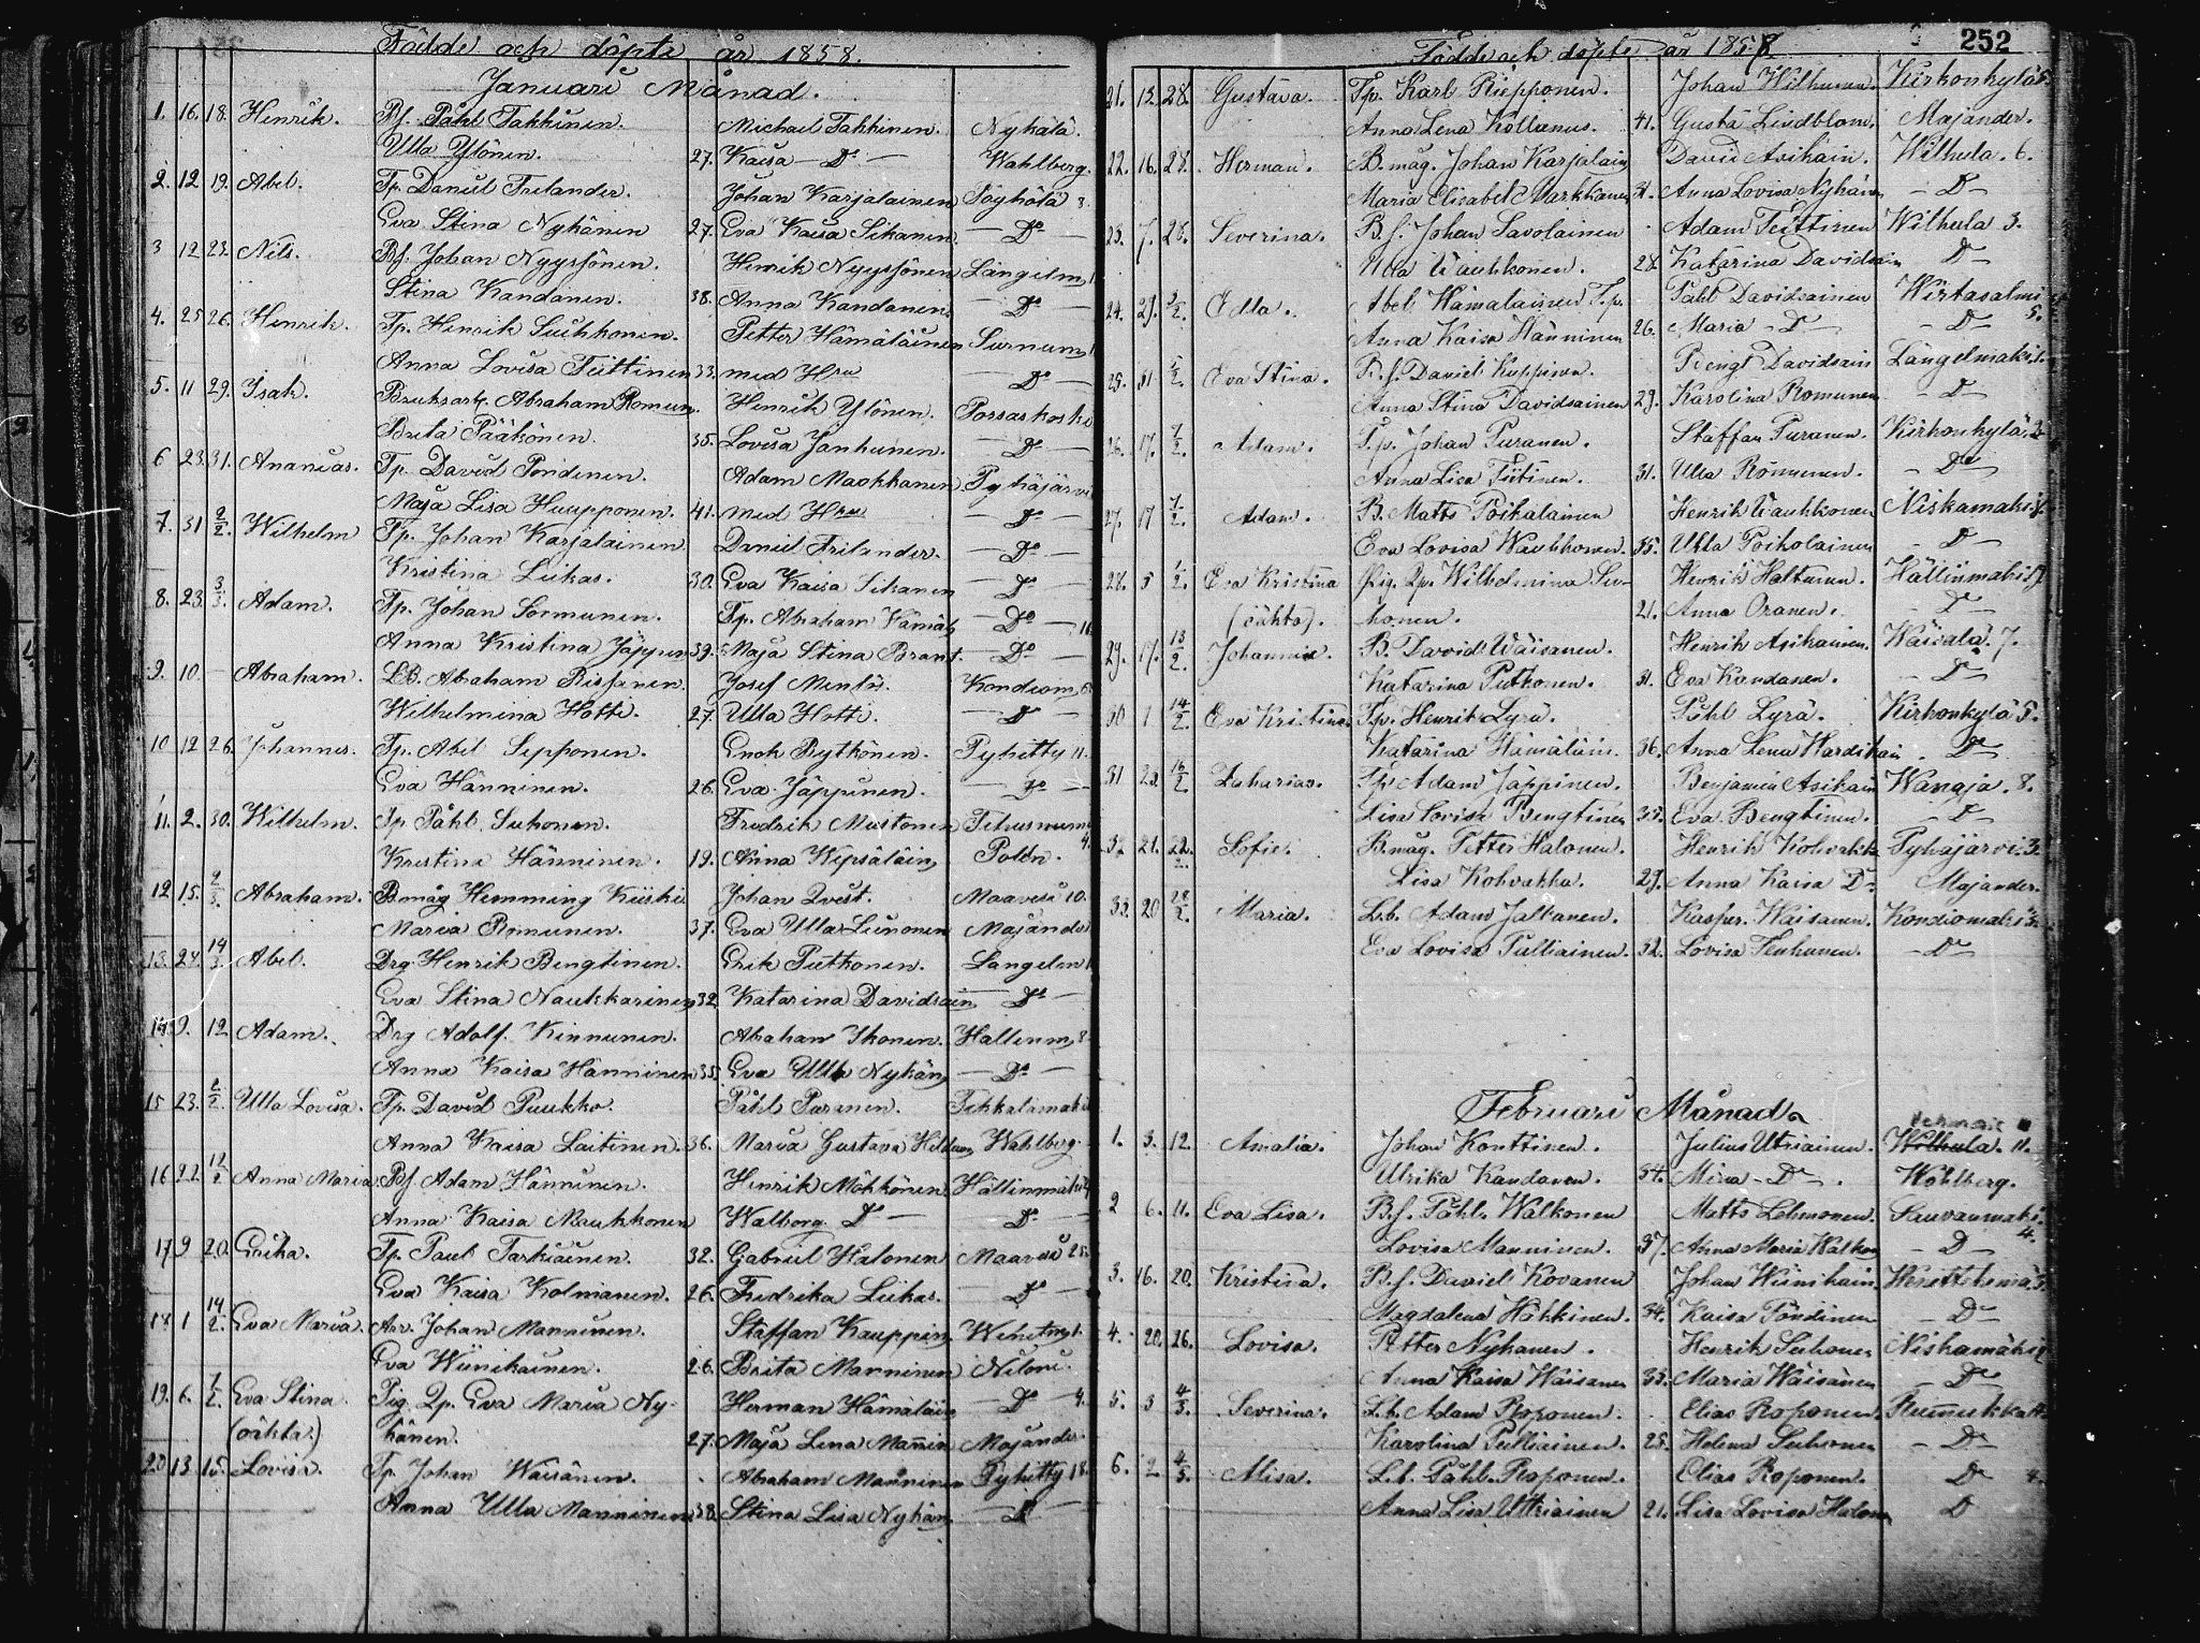 Födde och döpte år 1858.
Januari Månad.
1. 16. 18. Henrik. Bf. Påhl Takkinen. Michael Takkinen. Nykälä.
Ulla Ylönen. 27. Kaisa — Do — Wahlberg.
2. 12 19. Abel. Tp. Daniel Frilander. Johan Karjalainen Söyhölä 3.
Eva Stina Nykänen 27. Eva Kaisa Sikanen. — Do —
3 12 23. Nils. Bf. Johan Nyyssönen. Henrik Nyyssönen Längelm
Stina Kandanen. 38. Anna Kandanen. — Do —
4. 25 26. Henrik. Tp. Henrik Suhkonen. Petter Hämäläinen Surnum
Anna Lovisa Teittinen 33. med Hru — Do —
5. 11 29. Isak. Bruksarb. Abraham Romun. Henrik Ylönen. Porsaskoski
Brita Pääkönen. 35. Lovisa Janhunen. — Do —
6 23. 31. Ananias. Tp. David Pöndinen. Adam Maokkanen Pyhäjärvi
Maja Lisa Huupponen. 41. med Hru — Do —
7. 31 2/2. Wilhelm Tp. Johan Karjalainen Daniel Frilander. — Do —
Kristina Liikas. 30. Eva Kaisa Sikanen — Do —
8. 23. 3/3. Adam. Tp. Johan Sormunen. Tp. Abraham Hämäl — Do —
Anna Kristina Jäppin 39. Maja Stina Brant. — Do —
9. 10 — Abraham. LB. Abraham Rissanen. Josef Mentu. Kondiom 6.
Wilhelmina Hotti. 27. Ulla Hotti. — Do —
10 12 26. Johannes. Tp. Abel Sepponen. Enok Rytkönen. Pyhitty 11.
Eva Hänninen. 26. Eva Jäppinen. — Do —
11. 2. 30. Wilhelm. Tp Påhl Suhonen. Fredrik Mustonen
Kristina Hänninen. 19. Anna Wepsäläin Polon.
12 15. 2/3. Abraham. Bmåg Hemming Kiiski Johan Qvist. Maavesi 10.
Maria Romunen. 37. Eva Ulla Liinonen Majander
13. 24. 14 Abel. Drg. Henrik Bengtinen. Erik Putkonen. Langelm
Eva Stina Naukkarinen 32 Katarina Davidsain — Do —
14 9. 12 Adam. Drg Adolf. Kinnunen. Abraham Ikonen. Hallinm 8
Anna Kaisa Hänninen 35 Eva Ulla Nykän — Do —
15 23. 2/2. Ulla Lovisa. Tp. David Puukko. Påhl Puranen. Tikkalamäki
Anna Kaisa Laitinen. 36. Maria Gustava Hiltun Wahlberg.
16 22 12/2 Anna Maria Bf. Adam Hänninen. Henrik Mökkönen Hällinmäki
Anna Kaisa Maukkonen Walborg Do — Do —
17 9 20. Erika. Tp. Paul Tarkiainen. 32. Gabriel Halonen Maavesi 25.
Eva Kaisa Kolmanen. 26. Fredrika Liikas. — Do —
18 1 14/2. Eva Maria. Arr. Johan Manninen. Staffan Kauppin
Eva Wiinikainen. 26. Brita Manninen Niloni.
19. 6. 7/2. Eva Stina. Pig. Qp. Eva Maria Ny- Herman Hämäläin — Do — 4.
(oäkta) känen. 27. Maja Lena Mannin Majander
20 13 15. Lovisa. Tp. Johan Wäisänen. Abraham Manninen Pyhitty 18.
Anna Ulla Manninen 38. Stina Lisa Nykän. — Do —
252
Födde och döpte år 1858
21. 12. 28. Gustava. Tp. Karl Riepponen. Johan Wilhunen. Kirkonkylä 5.
Anna Lena Kollanus. 41. Gusta Lindblom. Majander.
22. 16. 28. Herman. B.måg. Johan Karjalain David Asikain. Wilhula. 6.
Maria Elisabet Markkanen 31. Anna Lovisa Nykän — Do —
23. 7. 28. Severina. B.f. Johan Savolainen Adam Teittinen Wilhula 3.
Ulla Wauhkonen. 28. Katarina Davidsain Do —
24. 29. 3/2. Edla. Abel Hämäläinen T.p. Påhl Davidsainen Wirtasalmi
Anna Kaisa Hänninen 26. Maria — Do — — Do — 5.
25. 31 5/2. Eva Stina. B.f. David Kuppinen. Bengt Davidsain Längelmäki
Anna Stina Davidsainen 29. Karolina Romunen — Do —
26. 17. 7/2. Adam. T.p. Johan Puranen. Staffan Puranen. Kirkonkylä. 2
Anna Lisa Tiitinen. 31. Ulla Romunen. — Do —
27. 17 7/2. Adam. B. Matts Poikalainen Henrik Wauhkonen Niskamäki
Eva Lovisa Wauhkonen. 35. Ulla Poikolainen — Do —
28. 5 7/2. Eva Kristina Pig. Qp. Wilhelmina Su- Henrik Haltunen. Hällinmäki
(oäkta). honen. 21. Anna Oranen. — Do —
29. 17. 13/2. Johannes. B. David Wäisänen. Henrik Asikainen. Wäisälä. 7.
Katarina Putkonen. 31. Eva Kandanen. — Do —
30 1 14/2. Eva Kristina. Tp. Henrik Lyra. Påhl Lyra. Kirkonkylä 5.
Katarina Hämäläin. 36. Anna Lena Hardikain — Do —
31 23. 16/2 Zakarias. Tp. Adam Jäppinen. Benjamin Asikain Wangja. 8.
Lisa Lovisa Bengtinen 35. Eva Bengtinen. — Do —
32. 21. 22/2. Sofia. B.måg. Petter Halonen. Henrik Kohvakka Pyhäjärvi 3.
Lisa Kohvakka. 29. Anna Kaisa Do Majander.
33. 20 28/2. Maria. L.b. Adam Jalkanen. Kasper. Wäisänen. Kondiomäki 3.
Eva Lovisa Pulliainen. 32. Lovisa Tenhunen. — Do —
Februari Månad
1. 3. 12. Amalia. Johan Konttinen. Julius Utriainen. Wilhula. 11.
Ulrika Kandanen. 34. Mina — Do —. Wohlberg.
2 6. 11. Eva Lisa. B.f. Påhl Walkonen Matts Lehmonen. Hauvanmäki
Lovisa Manninen. 37. Anna Maria Walkon — Do — 4.
3. 16. 20. Kristina. B.f. Daniel Kovanen Johan Wiinikain
Magdalena Häkkinen. 34. Kaisa Pöndinen — Do —
4. 20. 26. Lovisa. Petter Nykanen. Henrik Suhonen Niskamäki
Anna Kaisa Wäisänen 33. Maria Wäisänen — Do —
5. 3 4/3. Severina. L.b. Adam Roponen. Elias Roponen.
Karolina Pulliainen. 28. Helena Suhonen — Do —
6. 2 4/3. Miina. L.b. Påhl Roponen. Elias Roponen. Do 4.
Anna Lisa Uttriainen 21. Lisa Lovisa Halonen Do